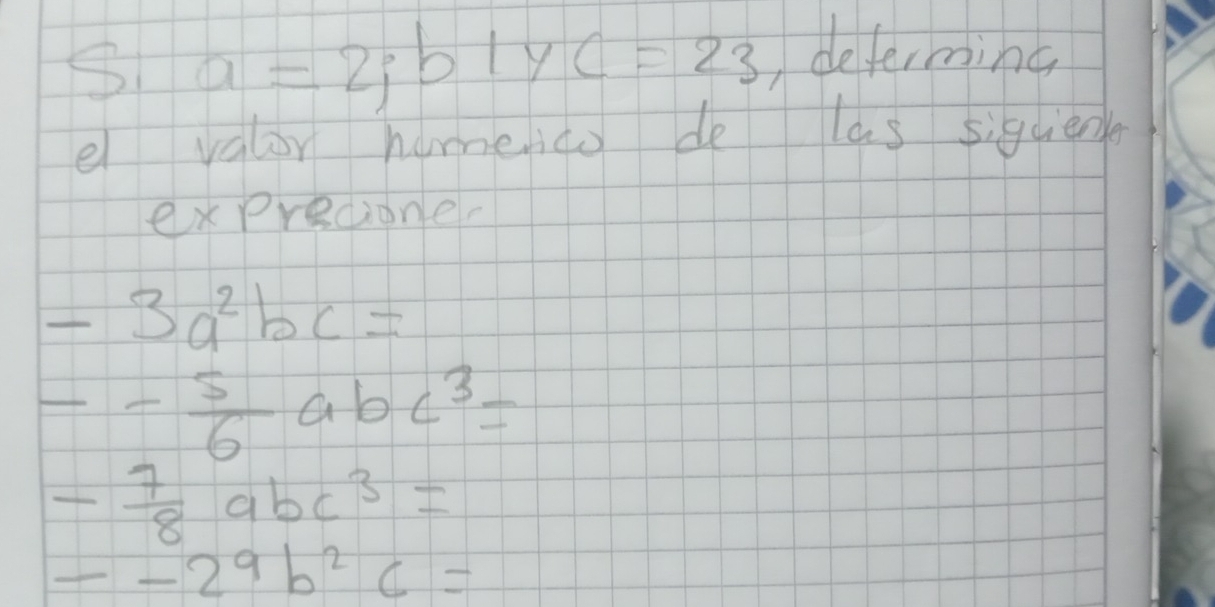 Si a = 2; b 1 y c = 23, determina
el valor numerico de las siguiente
expreciones
- 3a²bc =
- - 5/6 abc³ =
- 7/8 abc³ =
- - 2ab² c =